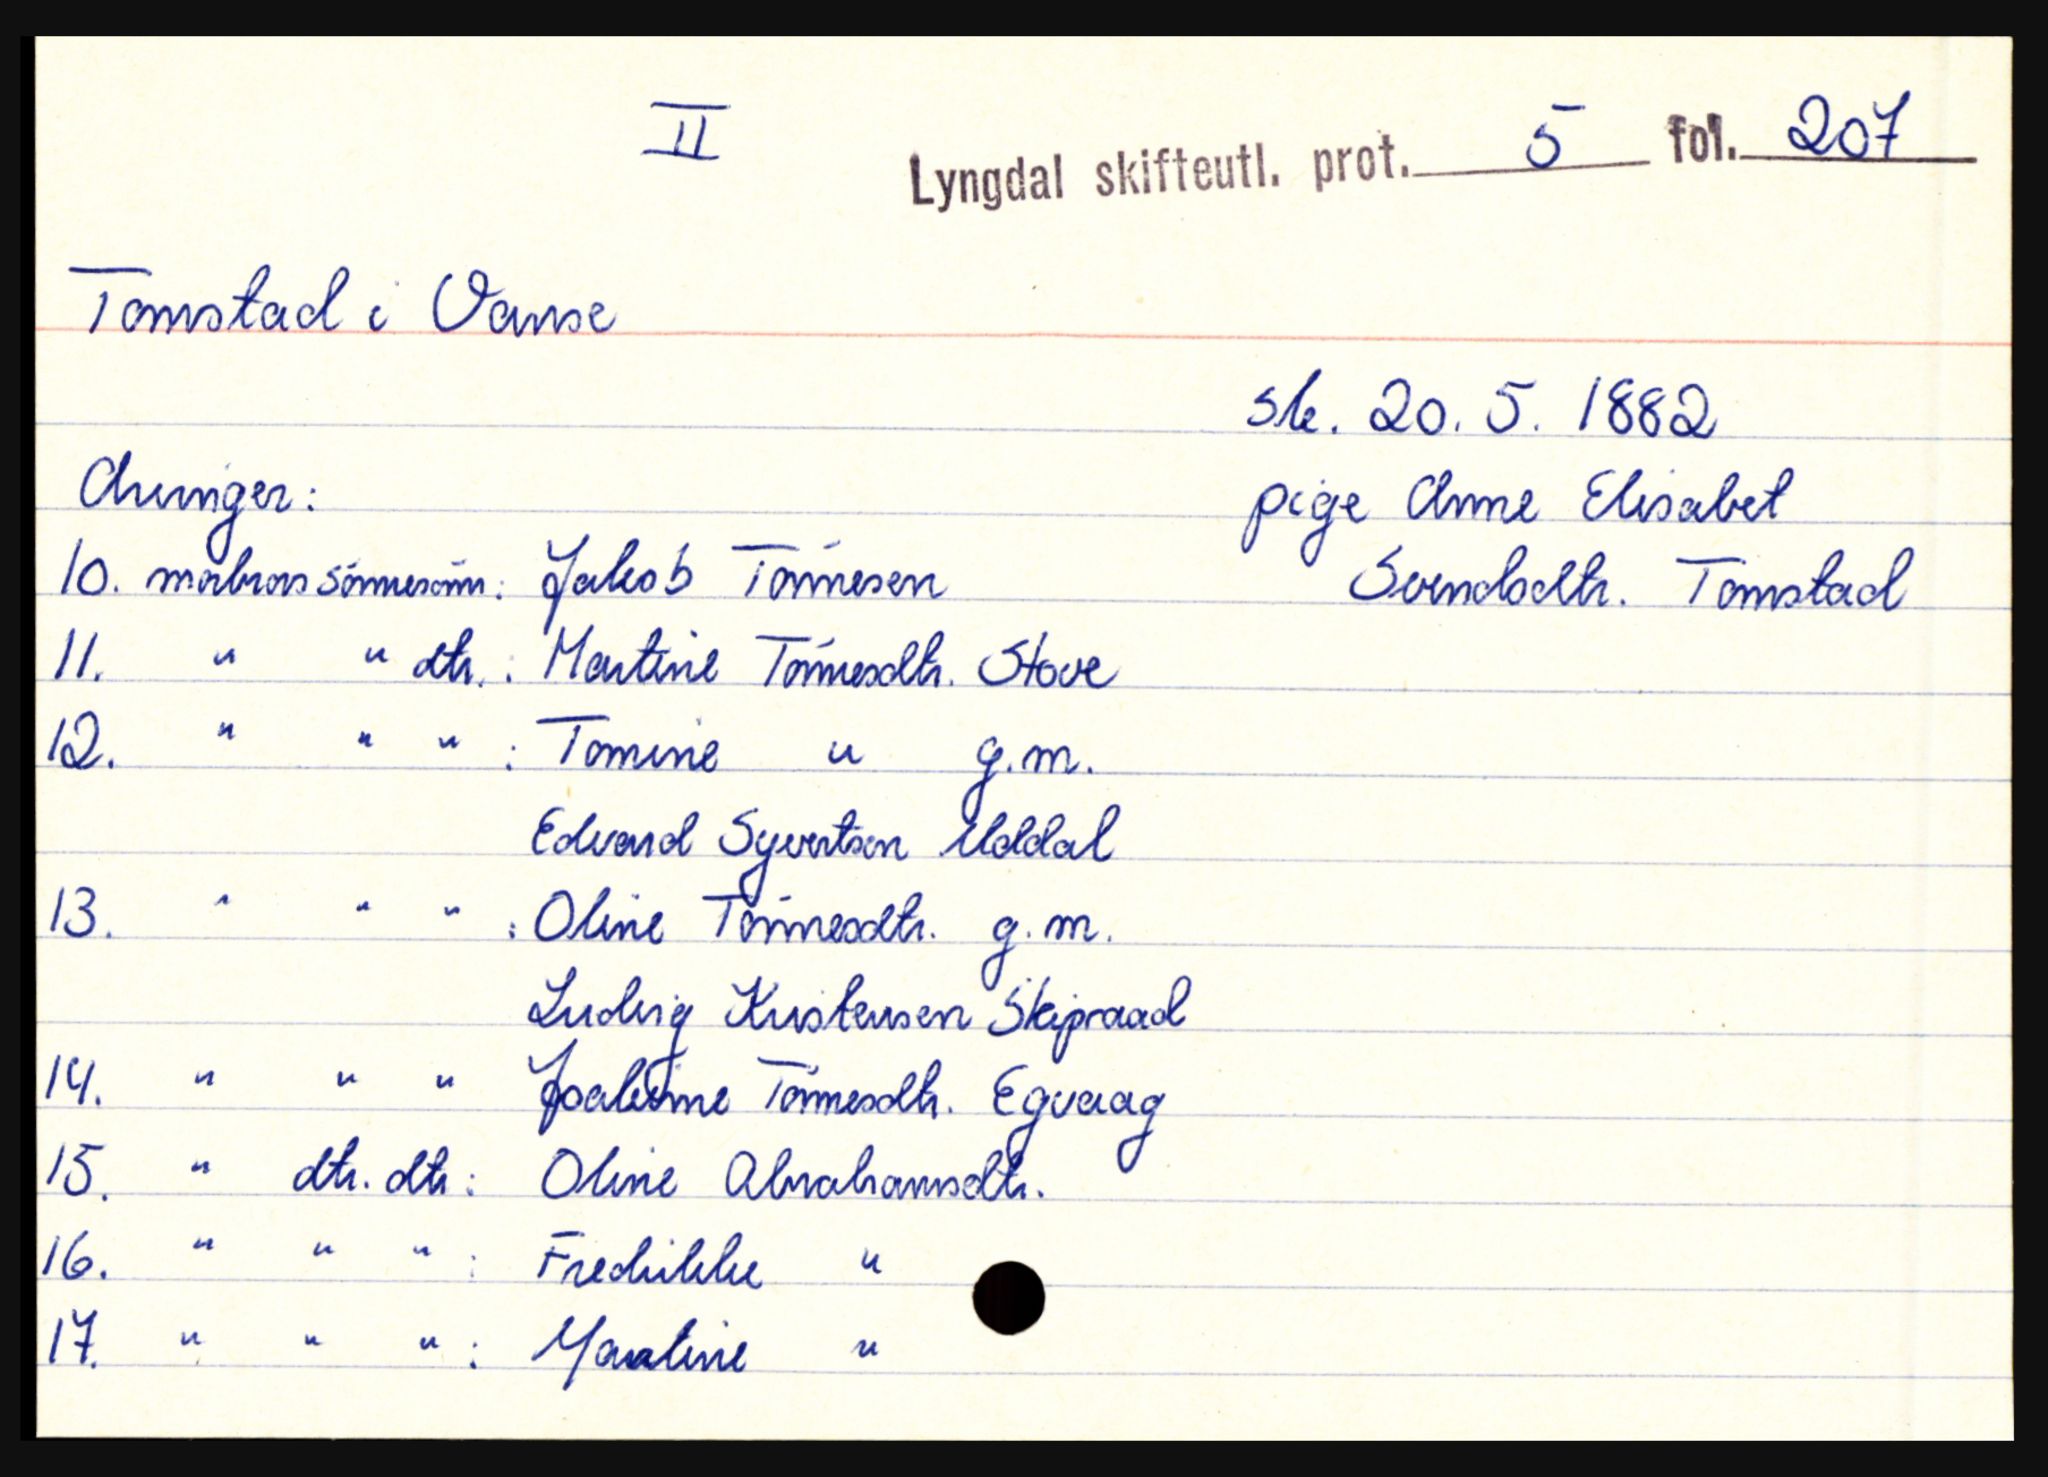 II
Lyngdal skifteutl. prot. 5 fol. 207
Tomstad i Vanse
sk. 20. 5. 1882
Arvinger:
pige Anne Elisabet
10. morbrors sönnesönn: Jakob Tönnesen
Svendsdtr. Tomstad
11. " " dtr.: Martine Tönnesdtr. Stove
12. " " " : Tomine " g.m.
Edvard Syvertsen Uddal
13. " " " : Oline Tönnesdtr. g.m.
Ludvig Kristensen Skipraad
14. " " " Joakime Tönnesdtr. Egvaag
15. " dtr. dtr: Oline Abrahamsdtr.
16. " " " : Fredrikke "
17. " " " : "